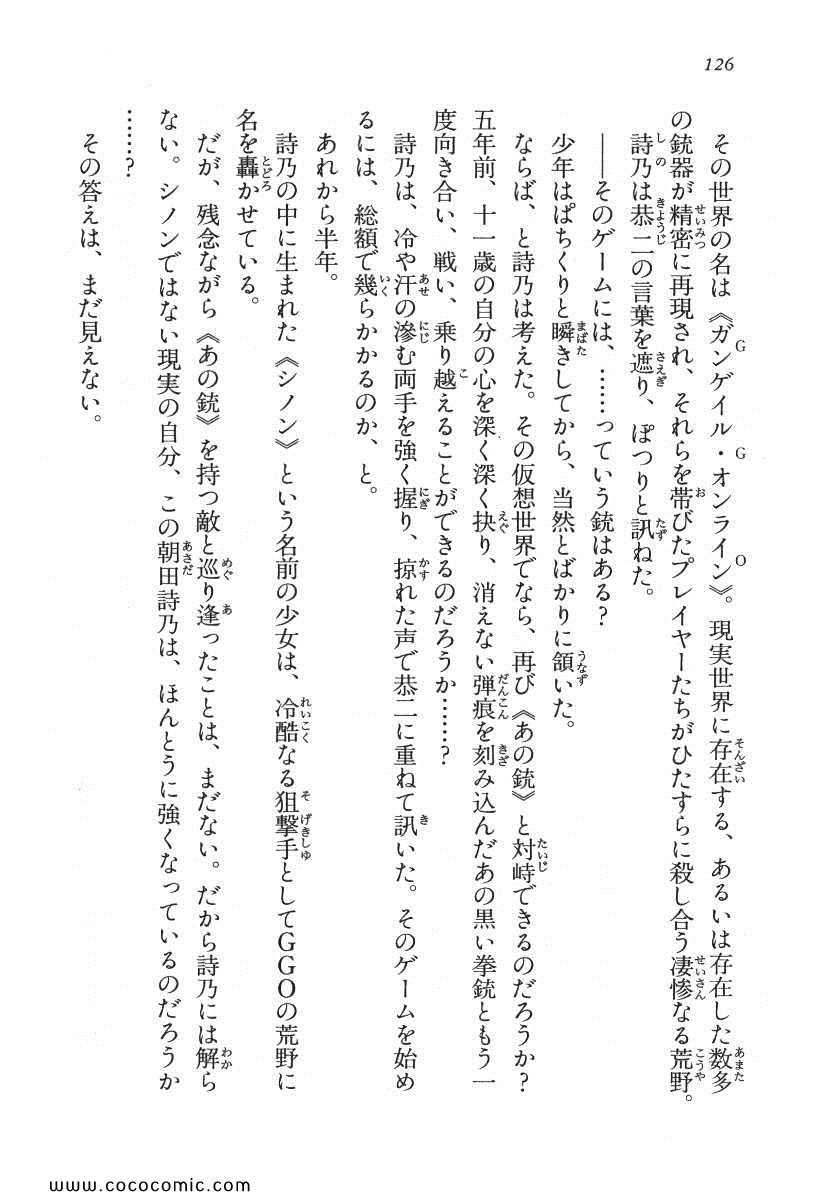 126
その世界の名は《ガンゲイル・オンライン》。現実世界に存在する、あるいは存在した数多
の銃器が精密に再現され、それらを帯びたプレイヤーたちがひたすらに殺し合う凄惨なる荒野。
詩乃は恭二の言葉を遮り、ぽつりと訊ねた。
――そのゲームには、……っていう銃はある?
少年はぱちくりと瞬きしてから、当然とばかりに頷いた。
ならば、と詩乃は考えた。その仮想世界でなら、再び《あの銃》と対峙できるのだろうか?
五年前、十一歳の自分の心を深く深く抉り、消えない弾痕を刻み込んだあの黒い拳銃ともう一
度向き合い、戦い、乗り越えることができるのだろうか……?
詩乃は、冷や汗の滲む両手を強く握り、掠れた声で恭二に重ねて訊いた。そのゲームを始め
るには、総額で幾らかかるのか、と。
あれから半年。
詩乃の中に生まれた《シノン》という名前の少女は、冷酷なる狙撃手としてGGOの荒野に
名を轟かせている。
だが、残念ながら《あの銃》を持つ敵と巡り逢ったことは、まだない。だから詩乃には解ら
ない。シノンではない現実の自分、この朝田詩乃は、ほんとうに強くなっているのだろうか
……?
その答えは、まだ見えない。
www.cococomic.com